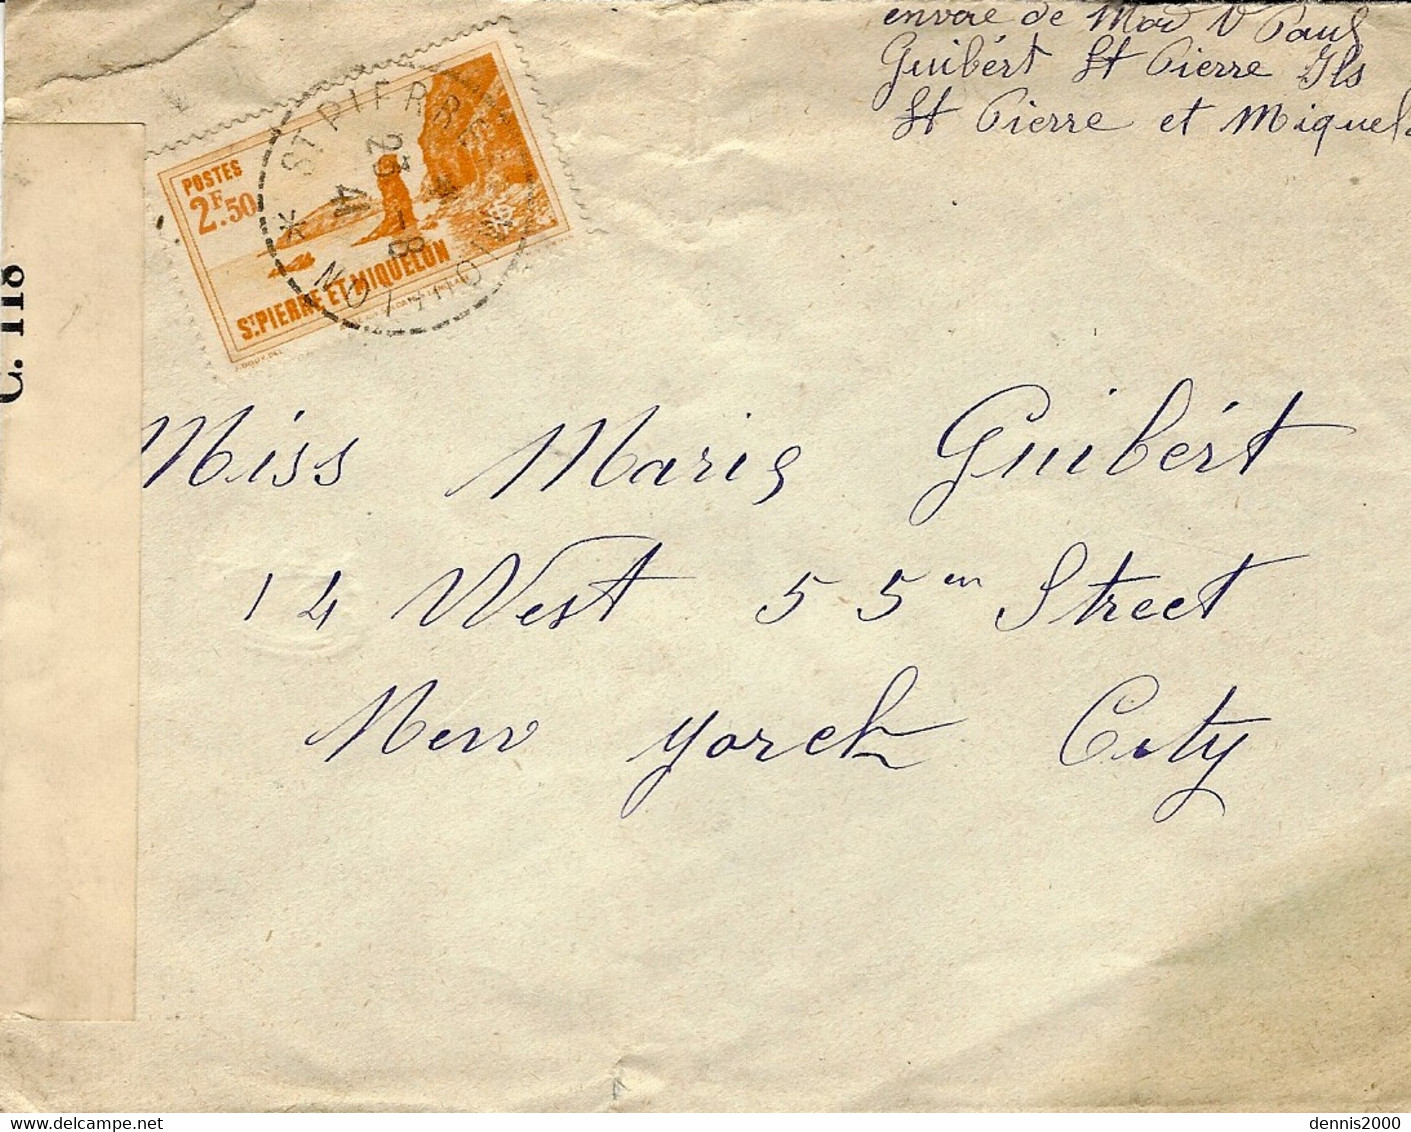 envoie de Mad V Paul
Guibért St Pierre Ils
St Pierre et Miquel
POSTES
2F.50
ST PIERRE ET MIQUELON
ST PIERRE
23 -8
41
MIQUELON
C. 118
Miss Marie Guibért
14 West 55 en Street
New Yorck City
dennis2000